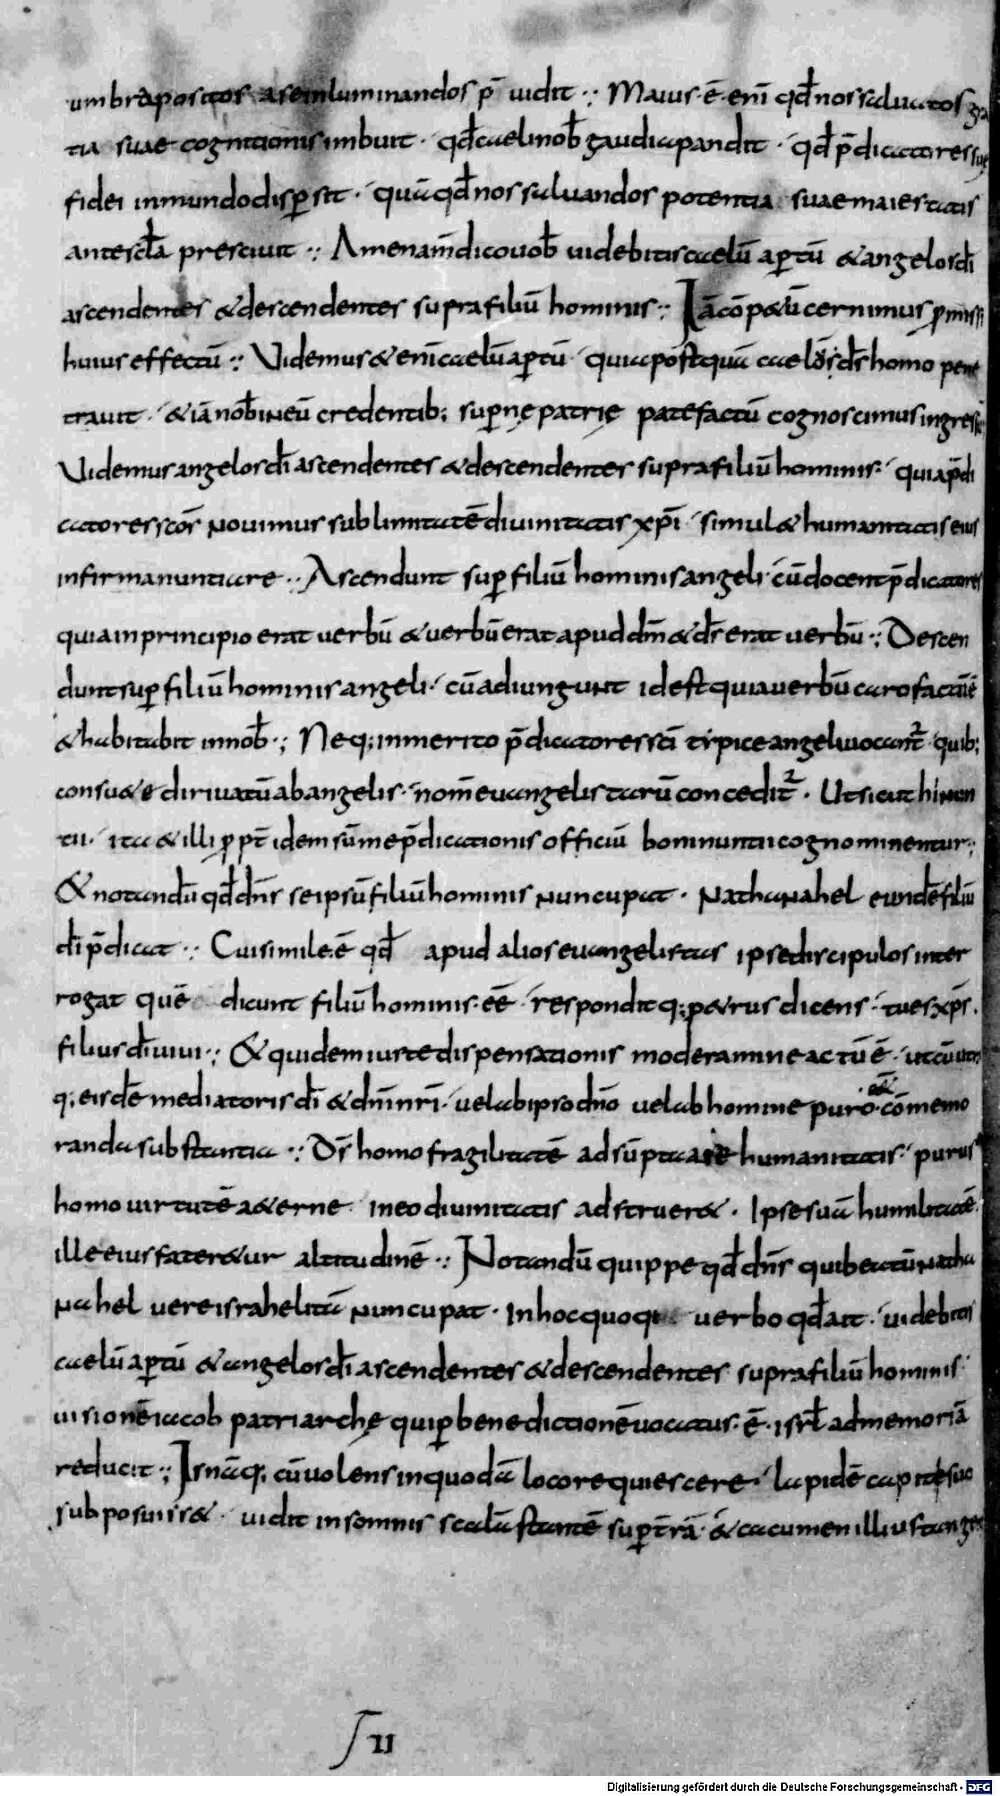 umbra positos a se inluminandos p̄ vidit ·:· Maius · ē · enī qđ nos saluatos gra
tia suae cognitionis imbuit · qđ caeli nob̄ gaudia pandit · qđ p̄dicatores suę
fidei in mundo disꝑsit · quā qđ nos saluandos potentia suae maiestatis
ante scła prescivit ·:· Amen am̄ dico vob̄ videbitis caelū aꝑtū & angelos dī
ascendentes & descendentes supra filiū hominis ·:· Iā cōp&ū cernimus ꝓmissi
huius effectū ·:· Videmus & enī caelū aꝑtū · quia postquā caelos ds̄ homo pene
travit · & iā nob̄ in eū credentib; suꝑnę patrię patefactū cognoscimus ingressū
Videmus angelos dī ascendentes & descendentes supra filiū hominis · quia p̄di
catores scōs novimus sublimitatē divinitatis xp̄i · simul & humanitatis eius
infirma nuntiare ·:· Ascendunt suꝑ filiū hominis angeli · cū docent p̄dicatores
quia in principio erat verbū & verbū erat apud dm̄ & ds̄ erat verbū ·:· Descen
dunt suꝑ filiū hominis angeli · cū adiungunt id est quia verbū caro factū ē
& habitabit in nob̄ ·; Neq; inmerito p̄dicatores scī typice angeli vocant̄ · quib;
consu&e dirivatū ab angelis · nom̄ evangelistarū concedit̄ · Ut sicut hi nun
tii · ita & illi ꝓpt̄ idem sūme p̄dicationis officiū boni nuntii cognominentur ·;
& notandū qđ dn̄s se ipsū filiū hominis nuncupat · Nathanahel eundē filiū
dī p̄dicat ·:· Cui simile ē qđ apud alios evangelistas ipse discipulos inter
rogat quē dicunt filiū hominis · eē · respondit q; p&rus dicens · tu es xp̄s ·
filius dī vivi ·; & quidem iuste dispensationis moderamine actū ē · ut cū utri
q; eisdē mediatoris dī & dn̄i nr̄i · vel ab ipso dn̄o vel ab homine puro · eēt cōmemo
randa substantia ·:· Ds̄ homo fragilitatē adsūptae humanitatis · purus
homo virtutē a&erne in eo divinitatis adstruer& · Ipse suā humilitatē
ille eius fater&ur altitudinē ·:· Notandū quippe qđ dn̄s qui beatū Natha
nahel vere israhelitā nuncupat · in hoc quoq; verbo qđ ait · videbitis
caelū aꝑtū & angelos dī ascendentes & descendentes supra filiū hominis ·
visionē iacob patriarchę qui ꝑ benedictionē vocatus · ē · isrł ad memoriā
reducit ·; Is nāq; cū volens in quodā loco requiescere · lapidē capiti suo
subposuiss& · vidit in somnis scalā stantē suꝑ t̄rā · & cacumen illius tangen
II
Digitalisierung gefördert durch die Deutsche Forschungsgemeinschaft - DFG